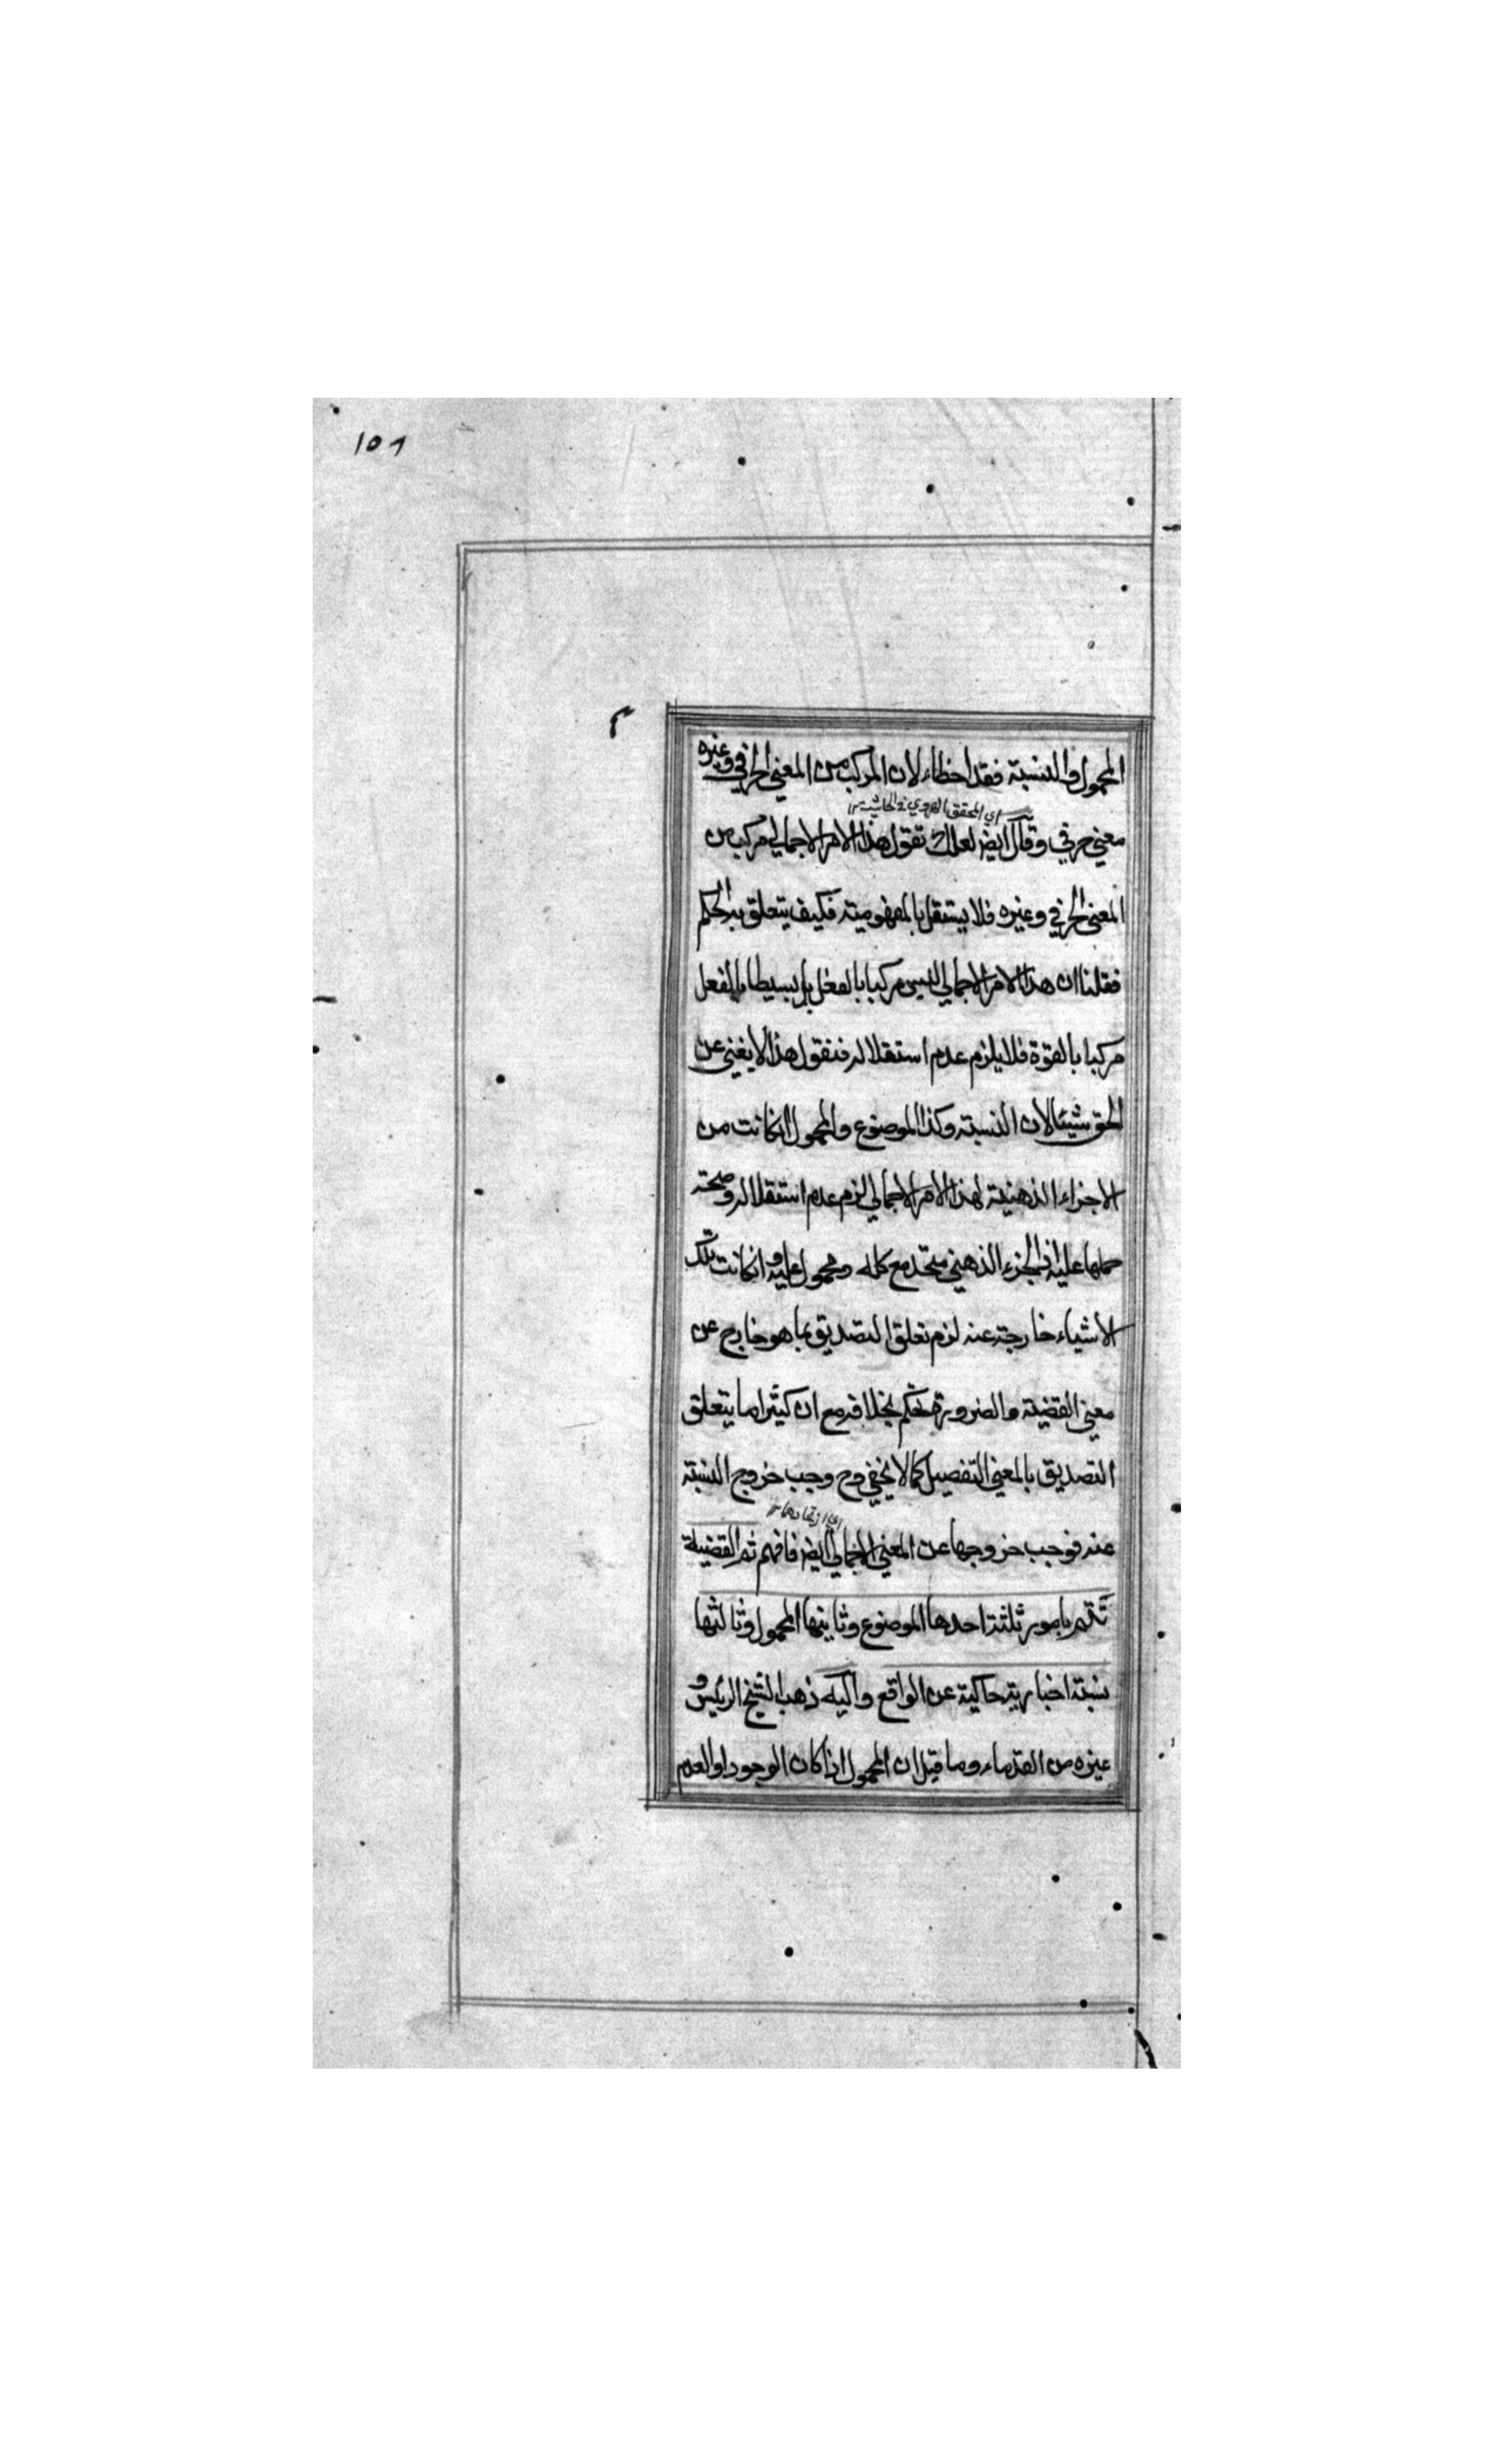 ١٥٦
م
المحمول والنسبة فقد اخطاء لان المركب من المعنى الحرفي وغيره
اي المحقق الهروي في الحاشية ١٢
معنى حرفي وقال ايضا لعلك تقول هذا الامر الاجمالي مركب من
المعنى الحرفي وغيره فلا يستقل بالمفهومية فكيف يتعلق به الحكم
فقلنا ان هذا الامر الاجمالي ليس مركبا بالفعل بل بسيطا بالفعل
مركبا بالقوة فلا يلزم عدم استقلاله فنقول هذا لا يغني عن
الحق شيئا لان النسبة وكذا الموضوع والمحمول ان كانت من
الاجزاء الذهنية لهذا الامر الاجمالي لزم عدم استقلاله وصحة
حملها عليه اذ الجزء الذهني متحد مع كله ومحمول عليه وانكانت تلك
الاشياء خارجة عنه لزم تعلق التصديق بما هو خارج عن
معنى القضية والضرورة تحكم بخلافه مع ان كثيرا ما يتعلق
التصديق بالمعنى التفصيلي كما لا يخفى وح وجب خروج النسبة
عنه فوجب خروجها عن المعنى الاجمالي ايضا فافهم ثم القضية
تتم بامور ثلثة احدها الموضوع وثانيها المحمول وثالثها
نسبة اخبارية حاكية عن الواقع واليه ذهب الشيخ الرئيس و
غيره من القدماء وما قيل ان المحمول اذا كان الوجود او العدم